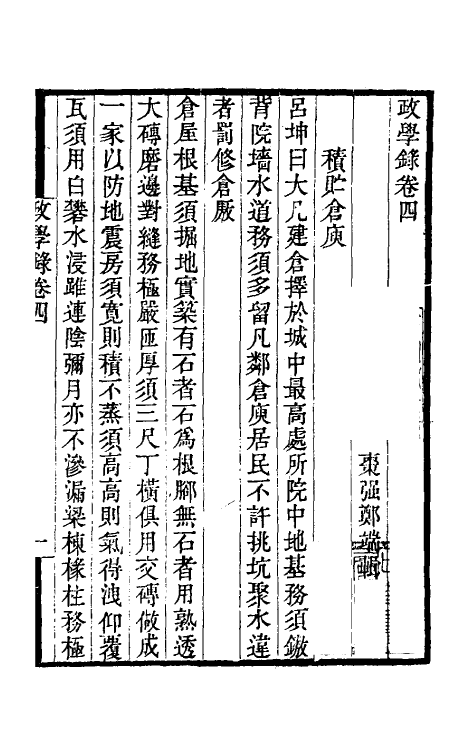 政學錄卷四
棗强鄭端輯
積貯倉庾
呂坤曰大凡建倉擇於城中最高處所院中地基務須鏾
背院墻水道務須多留凡鄰倉庾居民不許挑坑聚水違
者罰修倉厫
倉屋根基須掘地實築有石者石爲根脚無石者用熟透
大磚磨邊對縫務極嚴匝厚須三尺丁橫俱用交磚做成
一家以防地震房須寬則積不蒸須高高則氣得洩仰覆
瓦須用白礬水浸雖連陰彌月亦不滲漏梁棟椽柱務極
政學錄卷四
一